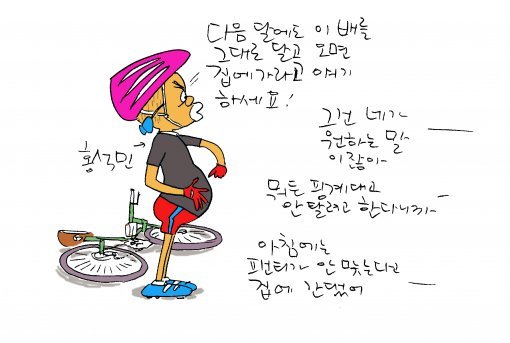 다음 달에도 이 배를
그대로 달고 오면
집에가라고 얘기
하세표!
홍석민
그건 네가
원하는 말
이잖아
뭐든 핑계대고
안 달려고 한다니까
아침에는
팬티가 안 맞는다고
집에 간댔어